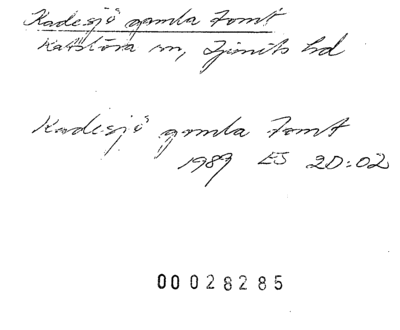 Kadesjö gamla tomt
Katslösa sn, Ljunits hd
Kadesjö gamla tomt
1989 ES 2D:02
00028285